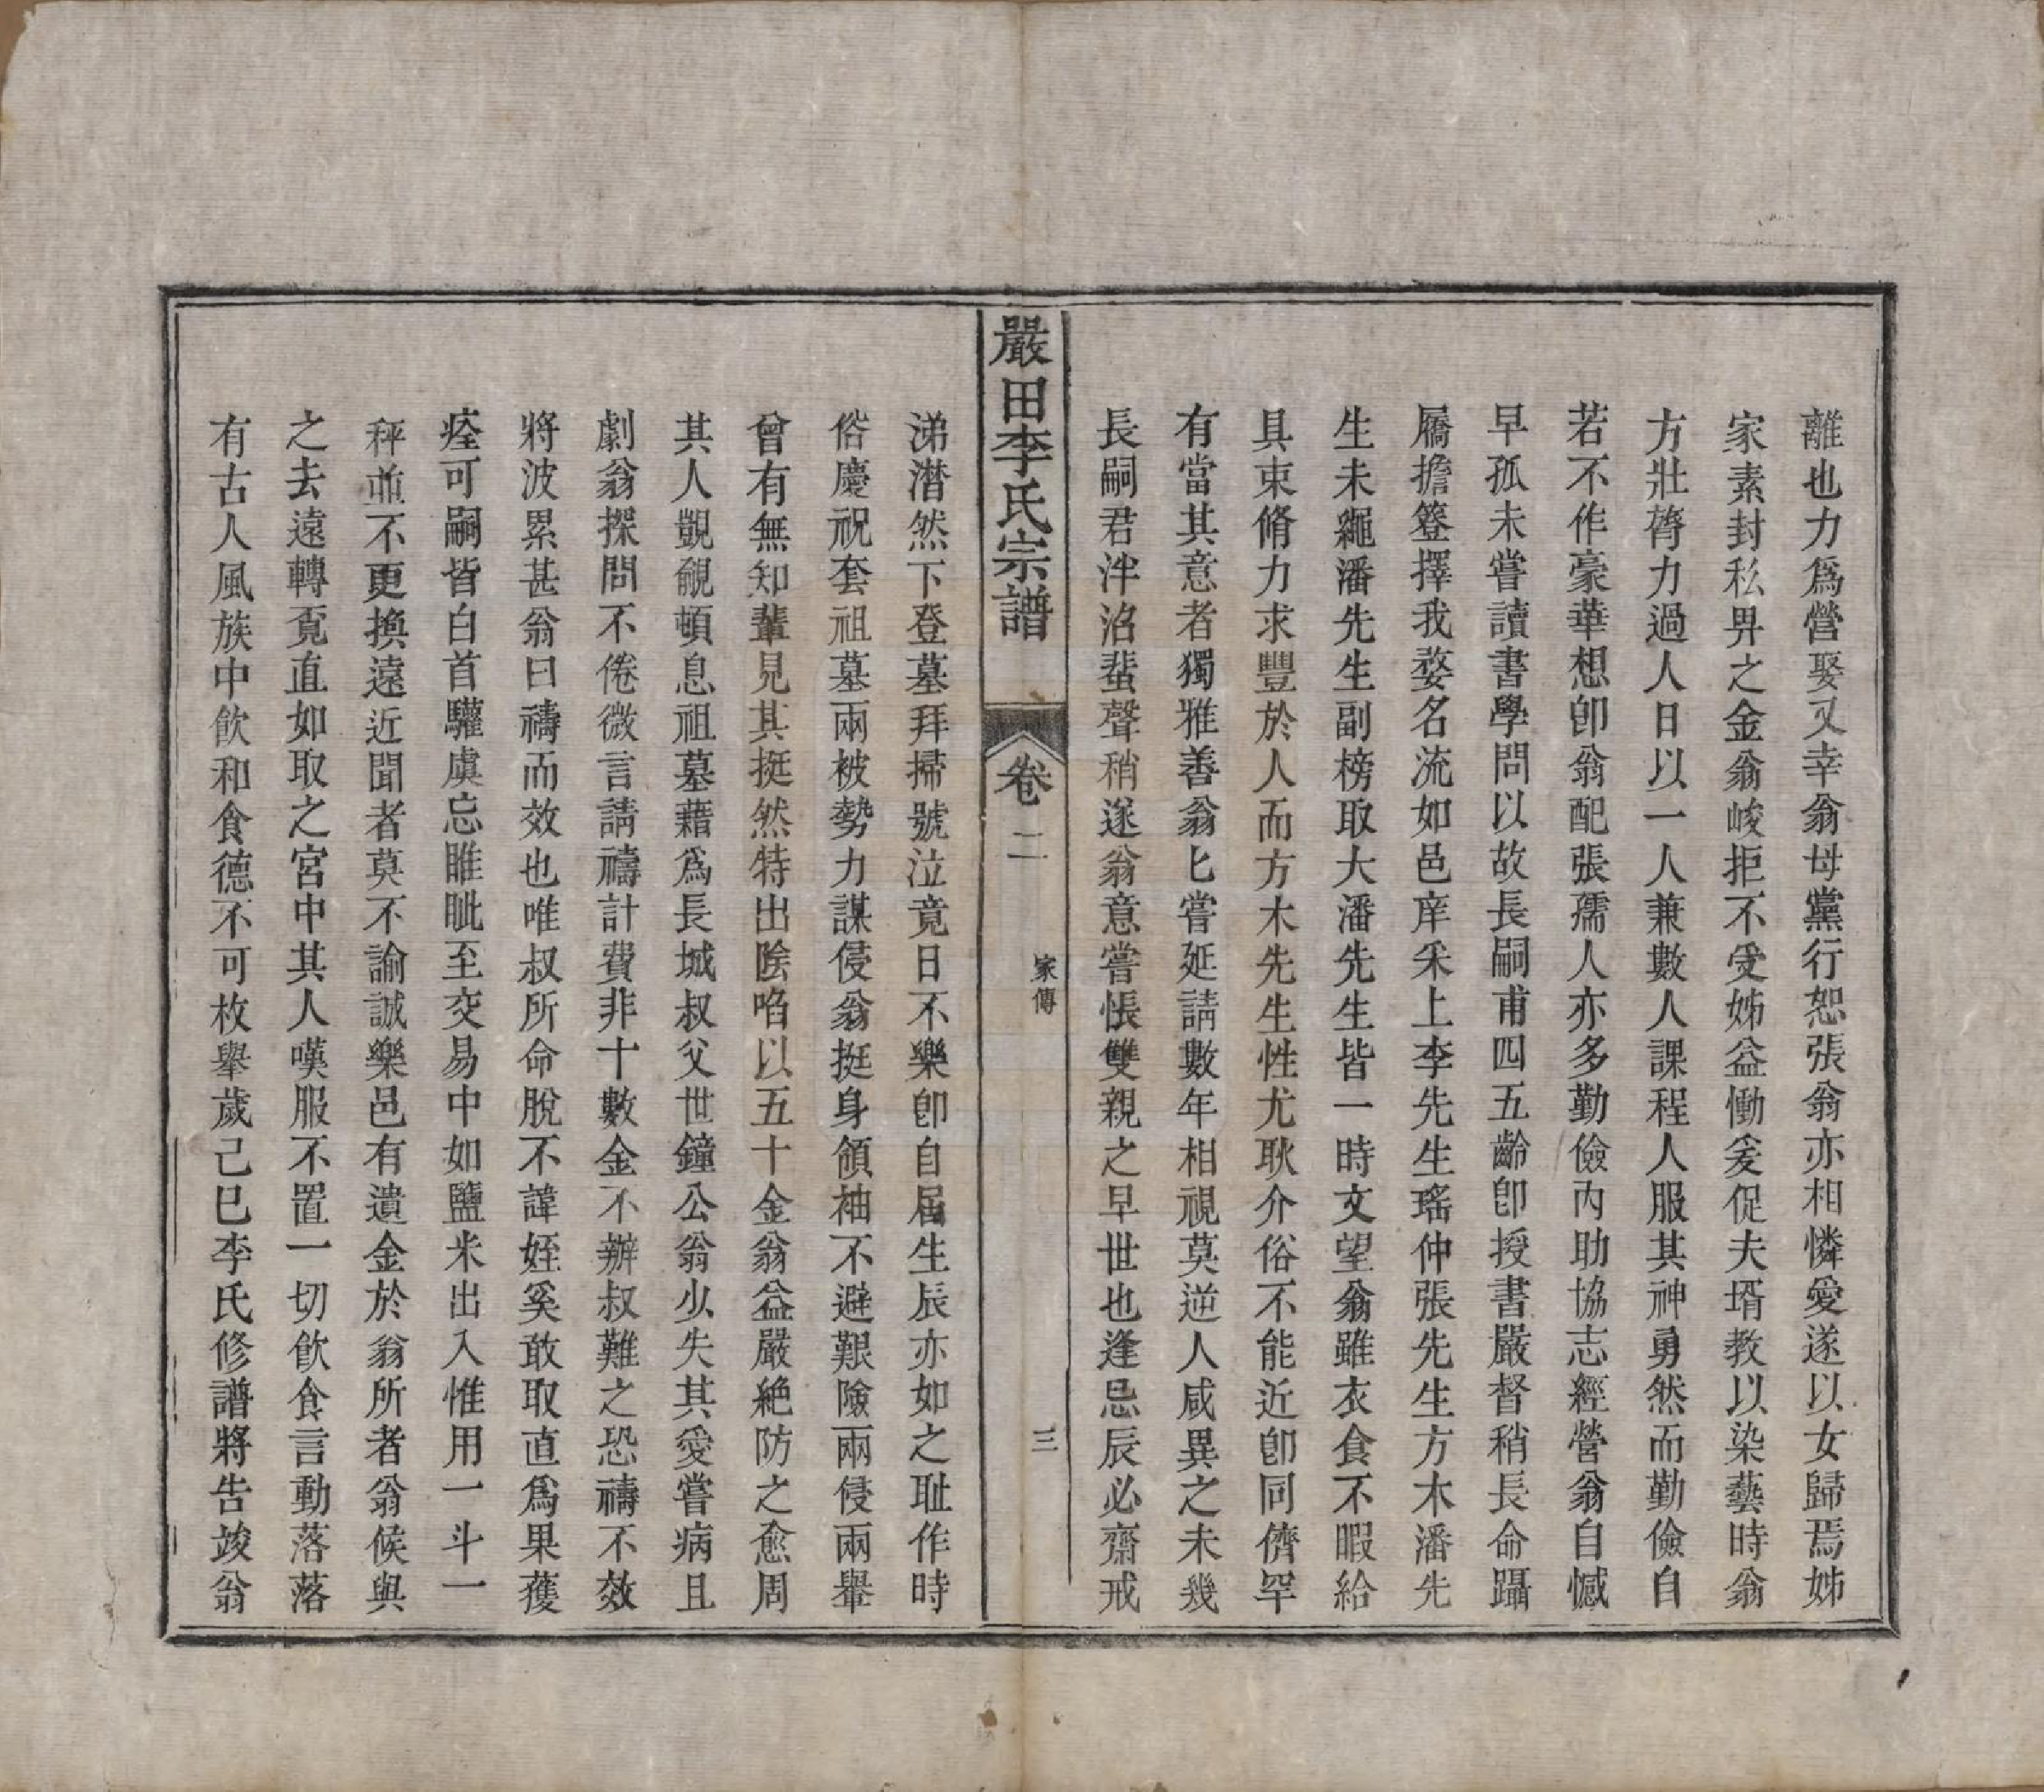 離也力爲營娶又幸翁母黨行恕張翁亦相憐愛遂以女歸焉姊
家素封私畀之金翁峻拒不受姊益慟爰促夫壻教以染藝時翁
方壯膂力過人日以一人兼數人課程人服其神勇然而勤儉自
若不作豪華想卽翁配張孺人亦多勤儉內助協志經營翁自憾
早孤未嘗讀書學問以故長嗣甫四五齡卽授書嚴督稍長命躡
屩擔簦擇我婺名流如邑庠釆上李先生瑤仲張先生方木潘先
生未繩潘先生副榜取大潘先生皆一時文望翁雖衣食不暇給
具束脩力求豐於人而方木先生性尤耿介俗不能近卽同儕罕
有當其意者獨雅善翁匕嘗延請數年相視莫逆人咸異之未幾
長嗣君泮沼蜚聲稍遂翁意嘗悵雙親之早世也逢忌辰必齋戒
嚴田李氏宗譜 卷二 家傳 三
涕潸然下登墓拜掃號泣竟日不樂卽自届生辰亦如之耻作時
俗慶祝套祖墓兩被勢力謀侵翁挺身領袖不避艱險兩侵兩舉
曾有無知輩見其挺然特出陰啗以五十金翁益嚴絶防之愈周
其人覬覦頓息祖墓藉爲長城叔父世鐘公翁少失其愛嘗病且
劇翁探問不倦微言請禱計費非十數金不辦叔難之恐禱不效
將波累甚翁曰禱而效也唯叔所命脫不諱姪奚敢取直爲果獲
痊可嗣皆白首驩虞忘睢眦至交易中如鹽米出入惟用一斗一
秤並不更換遠近聞者莫不諭誠樂邑有遺金於翁所者翁候與
之去遠轉覔直如取之宮中其人嘆服不置一切飮食言動落落
有古人風族中飮和食德不可枚舉歲己巳李氏修譜將告竣翁